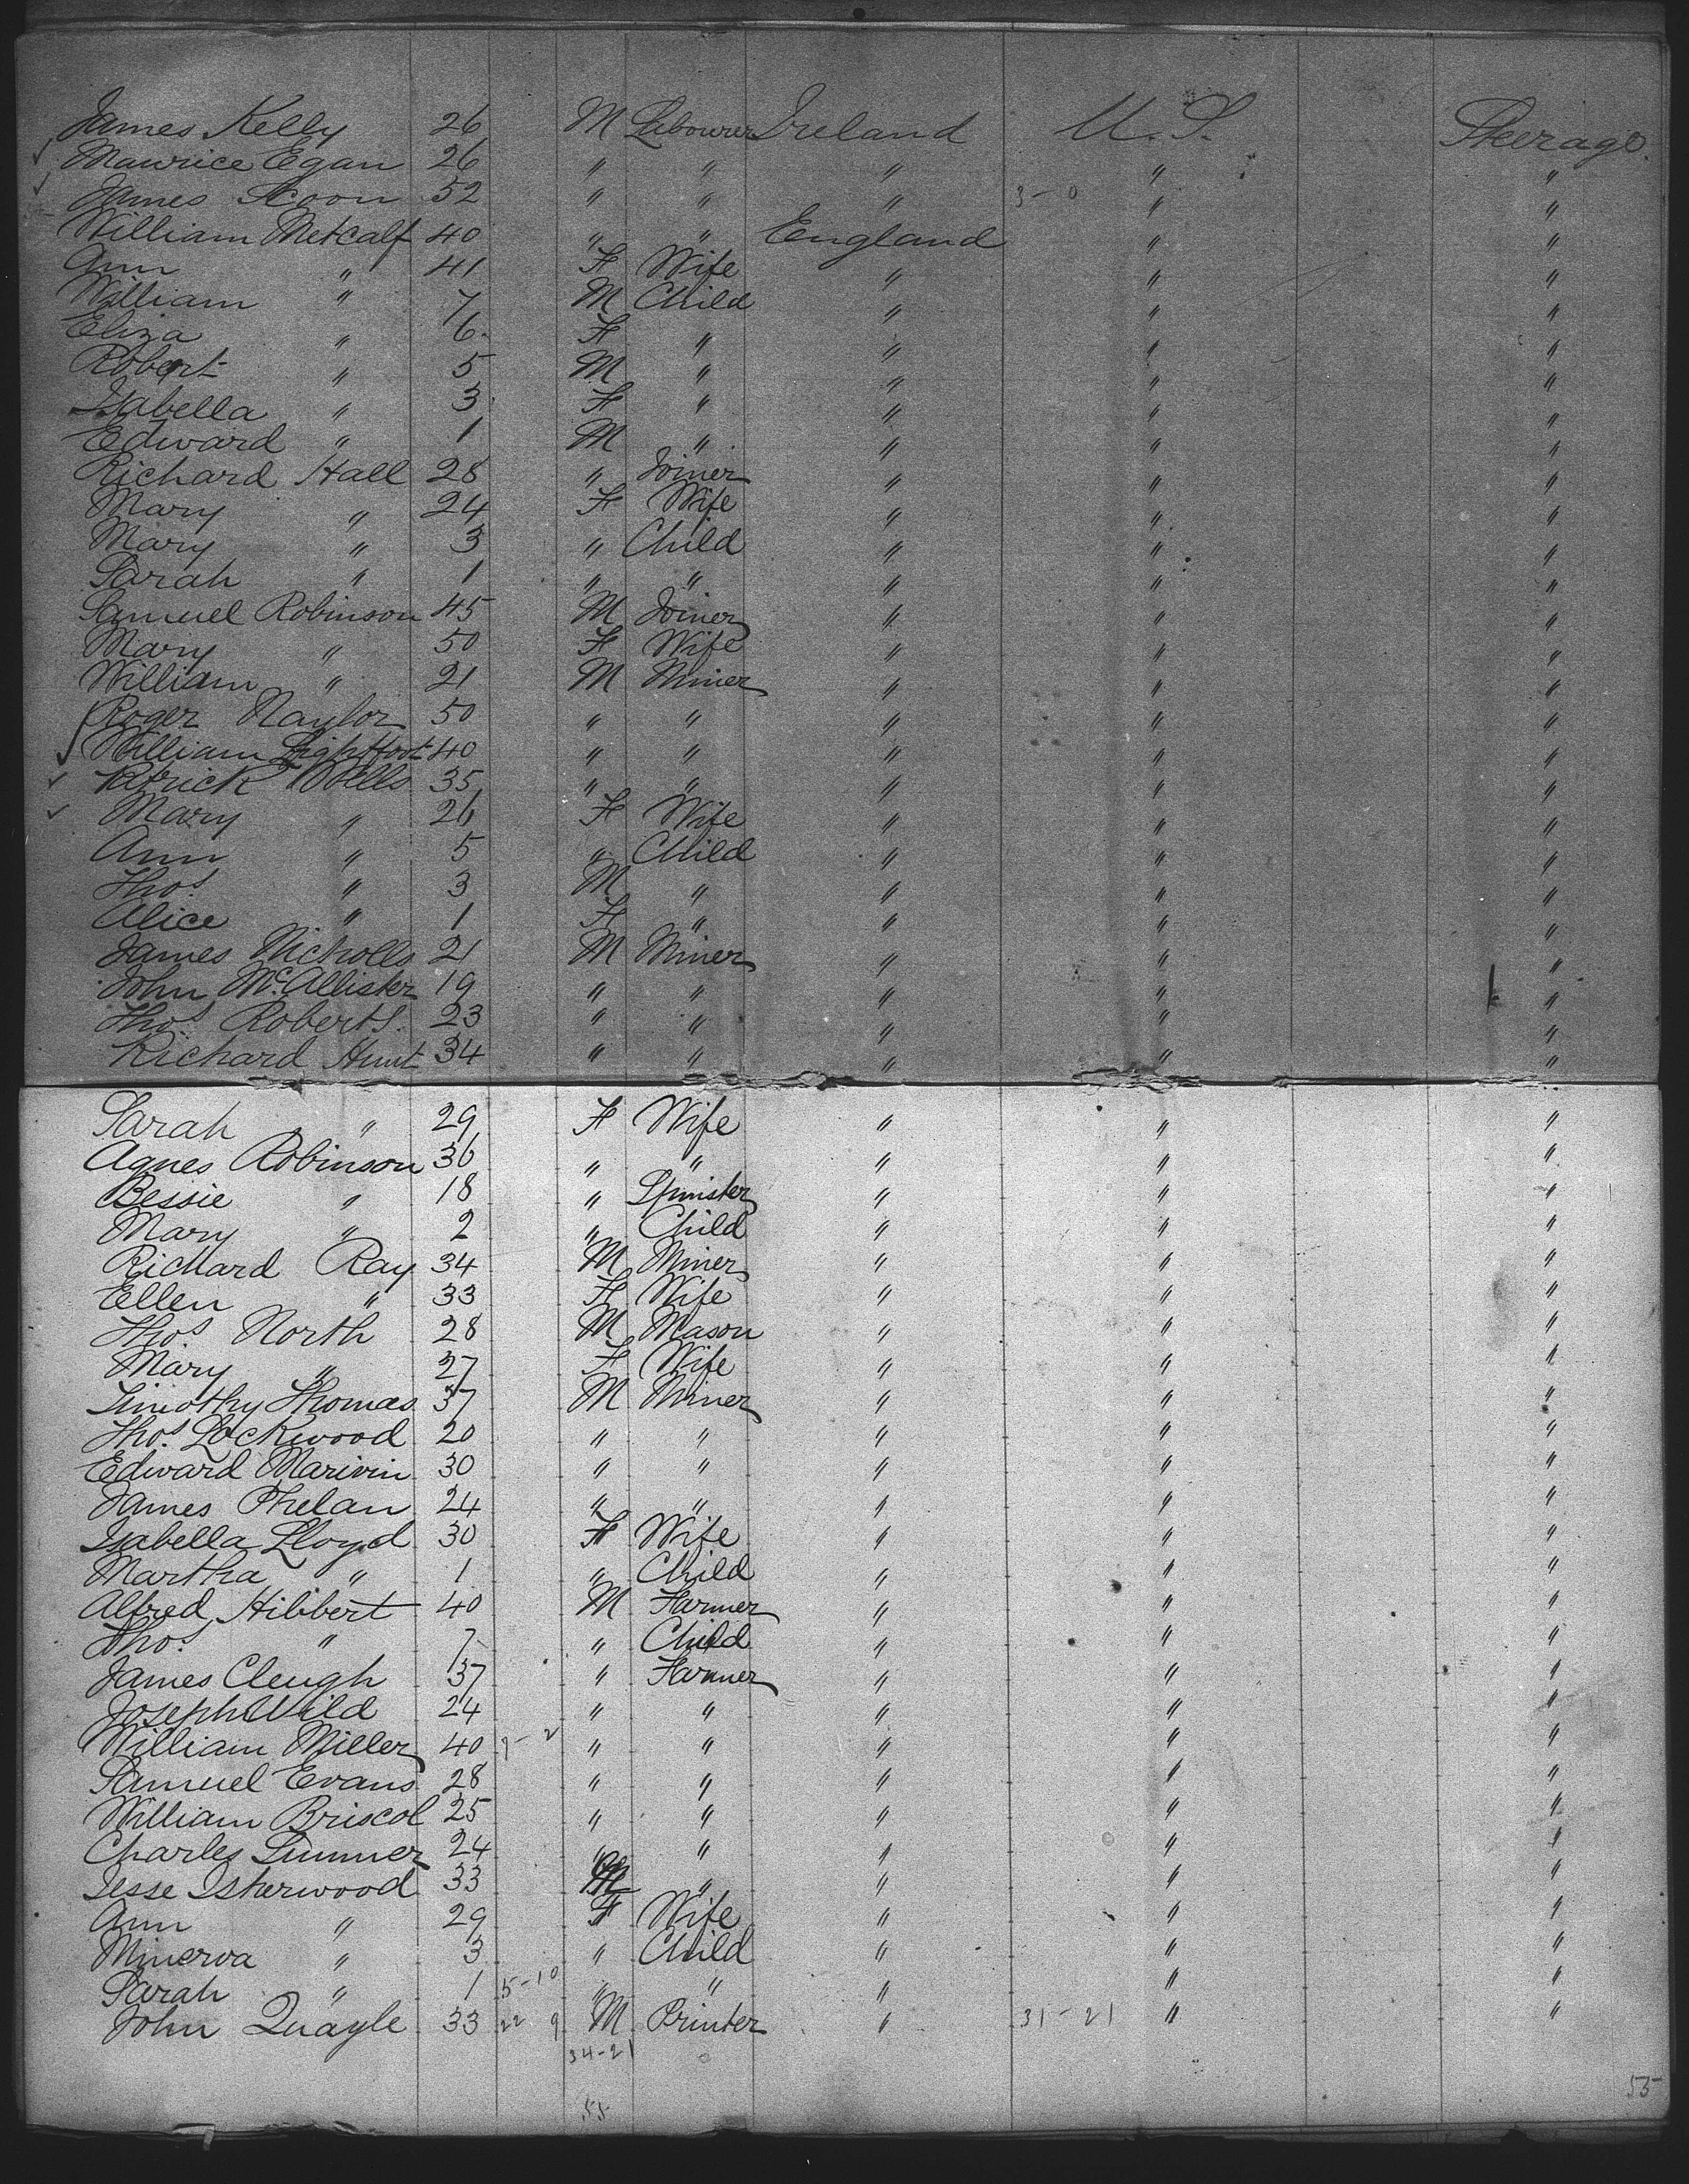 James Kelly 26 M Labourer Ireland U.S. Steerage
Maurice Egan 26 " " " " "
James 52 " " " 3-0 " "
William Metcalf 40 " " England " "
Ann " 41 F Wife " " "
William " 7 M Child " " "
Eliza " 6 F " " " "
Robert " 5 M " " " "
Isabella " 3 F " " " "
Edward " 1 M " " " "
Richard Hall 28 " Joiner " " "
Mary " 24 F Wife " " "
Mary " 3 " Child " " "
Sarah " 1 " " " " "
Samuel Robinson 45 M Joiner " " "
Mary " 50 F Wife " " "
William " 21 M Miner " " "
Roger Naylor 50 " " " " "
William Lightfoot 40 " " " " "
Patrick Wells 35 " " " " "
Mary " 26 F Wife " " "
Ann " 5 " Child " " "
Thos " 3 M " " " "
Alice " 1 F " " " "
James Nicholls 21 M Miner " " "
John McAllister 19 " " " " "
Thos Roberts 23 " " " " "
Richard Hunt 34 " " " " "
Sarah " 29 F Wife " " "
Agnes Robinson 36 " " " " "
Bessie " 18 " Spinster " " "
Mary " 2 " Child " " "
Richard Ray 34 M Miner " " "
Ellen " 33 F Wife " " "
Thos North 28 M Mason " " "
Mary " 27 F Wife " " "
Timothy Thomas 37 M Miner " " "
Thos Lockwood 20 " " " " "
Edward Marivin 30 " " " " "
James Phelan 24 " " " " "
Isabella Lloyd 30 F Wife " " "
Martha " 1 " Child " " "
Alfred Hibbert 40 M Farmer " " "
Thos " 7 " Child " " "
James Cleugh 37 " Farmer " " "
Joseph Wild 24 " " " " "
William Miller 40 " " " " "
Samuel Evans 28 " " " " "
William Briscol 25 " " " " "
Charles Sumner 24 " " " " "
Jesse Isherwood 33 M " " " "
Ann " 29 F Wife " " "
Minerva " 3 " Child " " "
Sarah " 1 5-10 " " " " "
John Quayle 33 22 9 M Printer " 31-21 " "
34-21
55
53